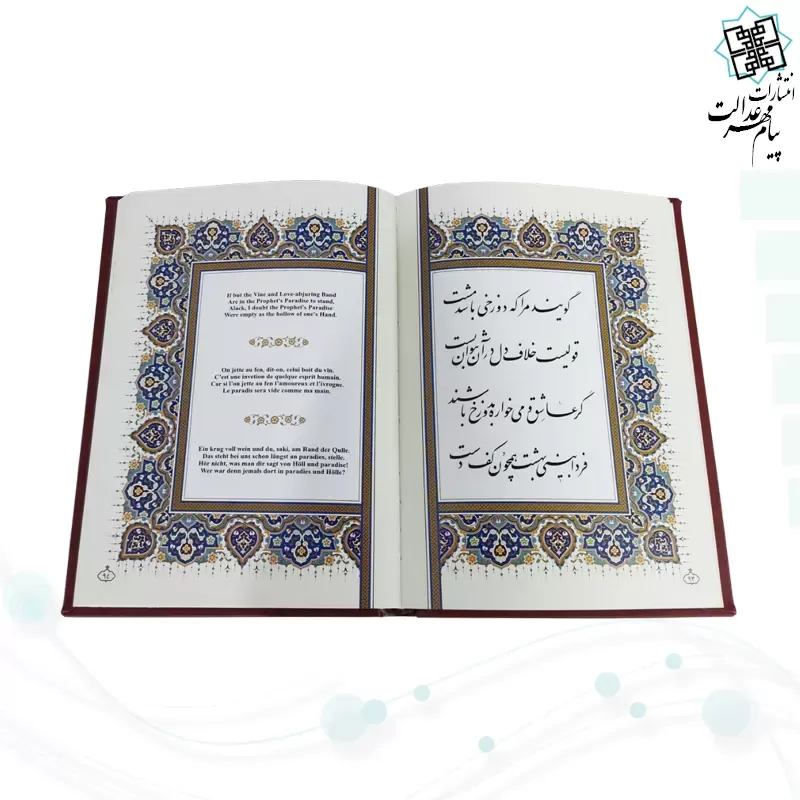 انتشارات
پیام مهر عدالت
گویند مرا که دوزخی باشد مست
قولیست خلاف دل در آن نتوان بست
گر عاشق و می خواره بدوزخ باشند
فردا بینی بهشت همچون کف دست
۹۳
If but the Vine and Love-abjuring Band
Are in the Prophet's Paradise to stand,
Alack, I doubt the Prophet's Paradise
Were empty as the hollow of one's Hand.
On jette au feu, dit-on, celui boit du vin.
C'est une invetion de quelque esprit humain.
Car si l'on jette au feu l'amoureux et l'ivrogne.
Le paradis sera vide comme ma main.
Ein krug voll wein und du, saki, am Rand der Qulle.
Das steht bei uns schon längst an paradies, stelle.
Hör nicht, was man dir sagt von Höll und paradise!
Wer war denn jemals dort in paradies und Hölle?
۹٤